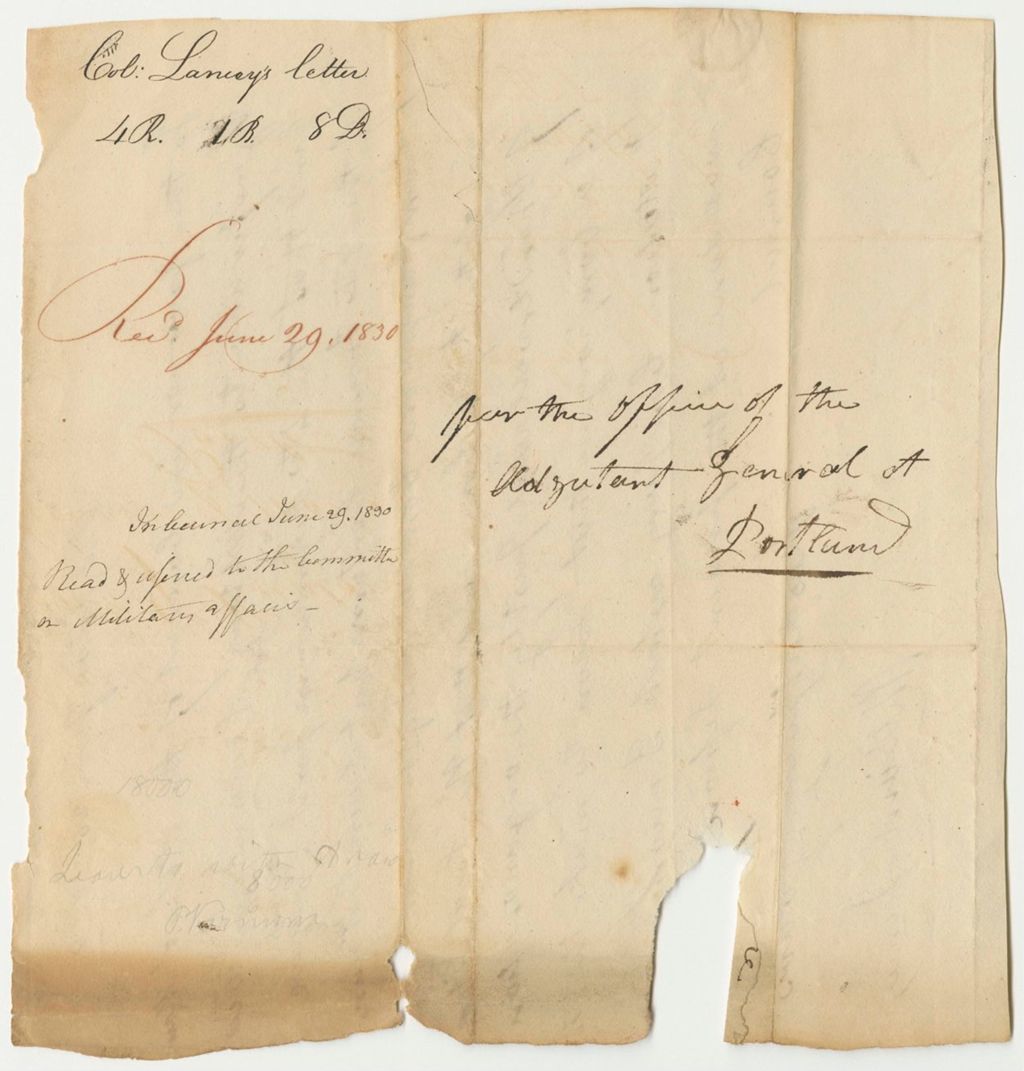 Col: Lancey's letter
4 R. 1. B. 8 D.
Recd. June 29, 1830
In Council June 29. 1830
Read & referred to the Committee
on Military affairs -
18000
Leave to with Draw
8000
for the office of the
Adjutant General at
Portland